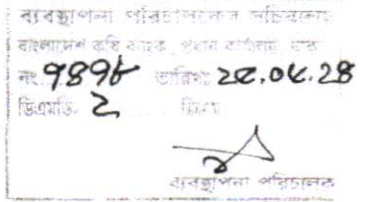 ব্যবস্থাপনা পরিচালকের সচিবালয়
বাংলাদেশ কৃষি ব্যাংক, প্রধান কার্যালয়, ঢাকা
নং ৭৪৭৮ তারিখঃ ২৫.০৫.২৪
ডিএমডি- ২
ব্যবস্থাপনা পরিচালক